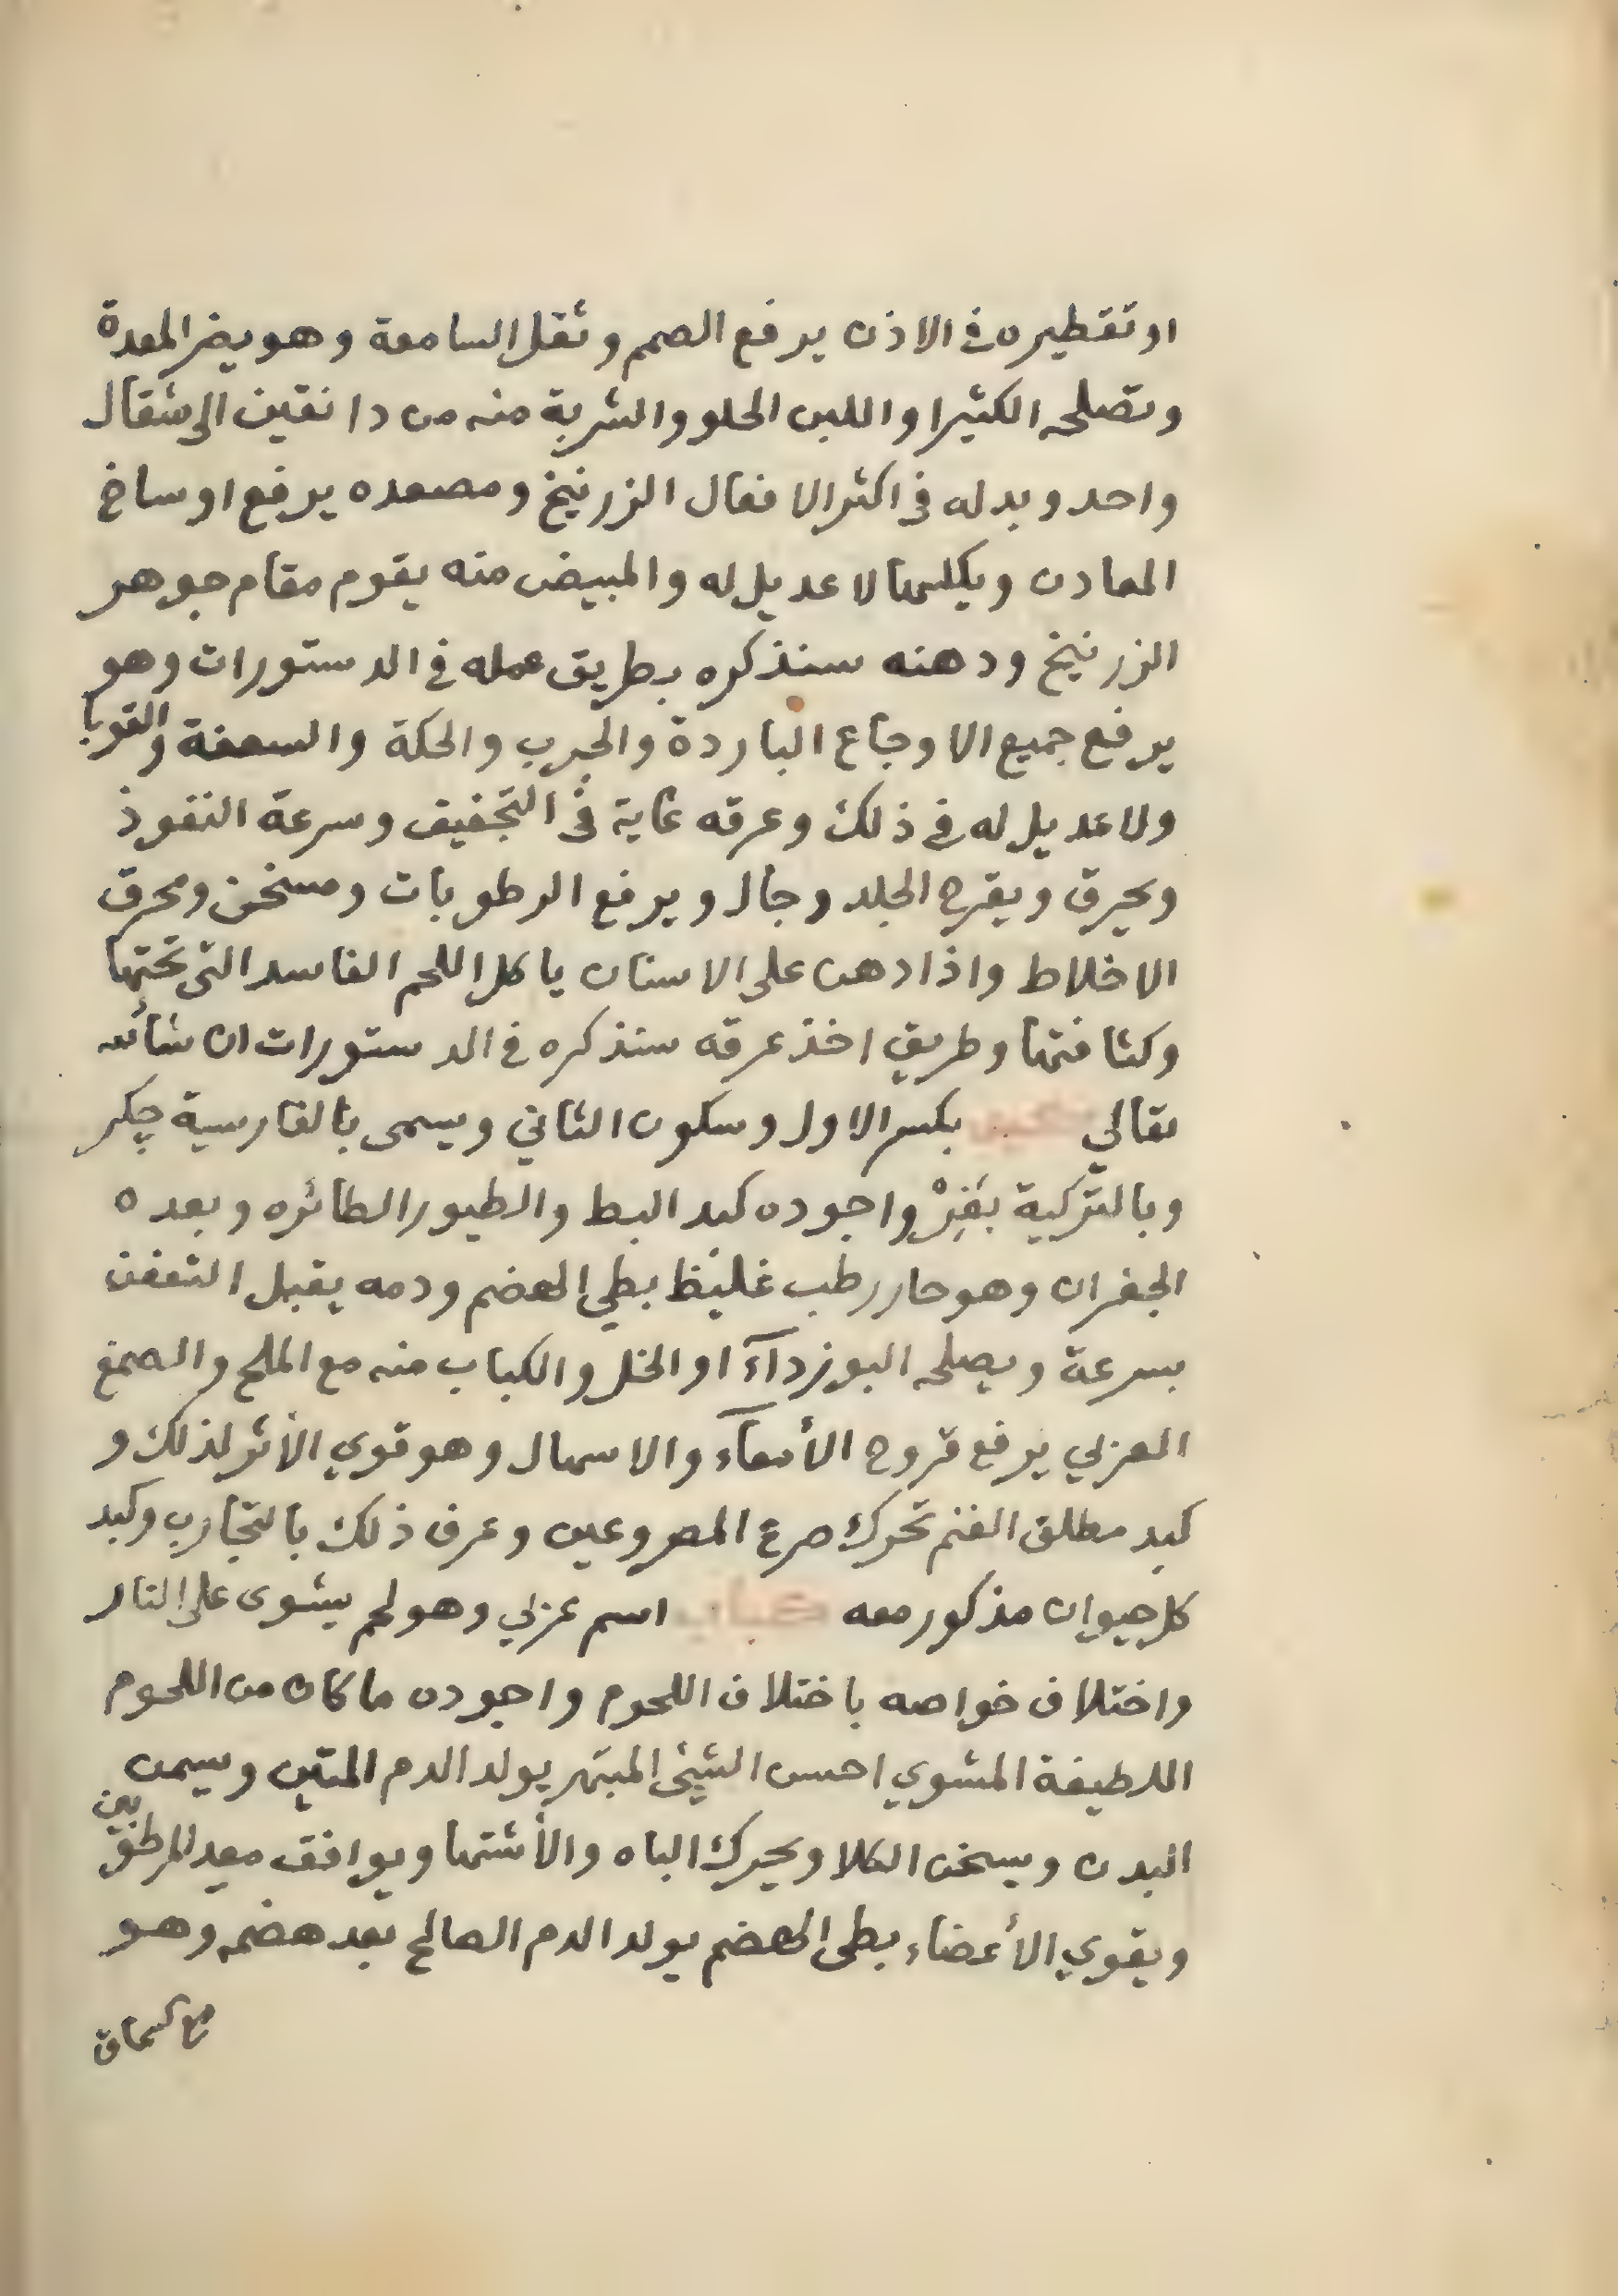 او تقطيره في الاذن يرفع الصمم وثقل السامعة وهو يضر المعدة
وتصلحه الكثيرا واللبن الحلو والشربة منه من دانقين الى مثقال
واحد وبدله في اكثر الافعال الزرنيخ ومصعده يرفع اوساخ
المعادن ويكلسها لا عديل له والمبيض منه يقوم مقام جوهر
الزرنيخ ودهنه سنذكره بطريق عمله في الدستورات وهو
يرفع جميع الاوجاع الباردة والجرب والحكة والسعفة والقوبا
ولا عديل له في ذلك وعرقه غاية في التجفيف وسرعة النفوذ
ويحرق ويقرح الجلد وجال ويرفع الرطوبات ومسخن ومحرق
الاخلاط واذا دهن على الاسنان ياكل اللحم الفاسد التي تحتها
وكثافتها وطريق اخذ عرقه سنذكره في الدستورات ان شأ الله
تعالي بكسر الاول وسكون الثاني ويسمى بالفارسية چكر
وبالتركية بَغِرْ واجوده كبد البط والطيور الطائره وبعده
الجفران وهو حار رطب غليظ بطي الهضم ودمه يقبل التعفن
بسرعة ويصلحه البوزدآء او الخل والكباب منه مع الملح والصمغ
العربي يرفع قروح الأمعآء والاسهال وهو قوي الأثر لذلك و
كبد مطلق الغنم تحرك صرع المصروعين وعرف ذلك بالتجارب وكبد
كل حيوان مذكور معه كباب اسم عربي وهو لحم يشوى على النار
واختلاف خواصه باختلاف اللحوم واجوده ما كان من اللحوم
اللطيفة المشوي احسن الشيئ المبتهر يولد الدم المتين ويسمن
البدن ويسخن الكلا ويحرك الباه والأشتها ويوافق معد المرطوبين
ويقوي الأعضاء بطى الهضم يولد الدم الصالح بعد هضمه وهو
مع السماق